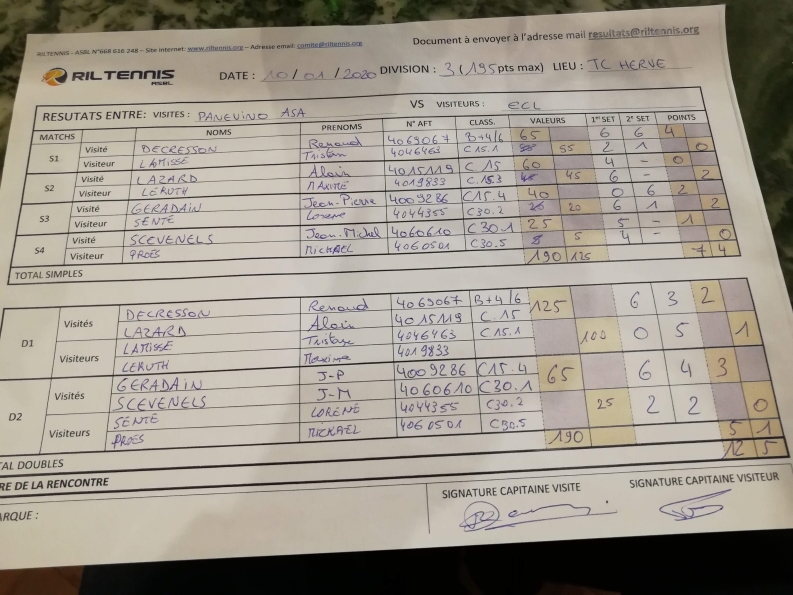 RILTENNIS - ASBL N°668 616 248 – Site internet: www.riltennis.org – Adresse email: comite@riltennis.org
Document à envoyer à l'adresse mail resultats@riltennis.org
RILTENNIS ASBL
DATE : 10/01/2020 DIVISION : 3 (195 pts max) LIEU : TC HERVE
RESUTATS ENTRE: VISITES : PANEVINO ASA VS VISITEURS : ECL
MATCHS NOMS PRENOMS N° AFT CLASS. VALEURS 1er SET 2e SET POINTS
S1 Visité DECRESSON Renaud 4069067 B+4/6 65 6 6 4
Visiteur LAMISSE Tristan 4046463 C 15.1 55 2 1 0
S2 Visité LAZARD Alain 4015119 C 15 60 4 - 0
Visiteur LERUTH MAXIME 4019833 C.15.3 45 6 - 2
S3 Visité GERADAIN Jean-Pierre 4009286 C15.4 40 0 6 2
Visiteur SENTE Lorene 4044355 C30.2 20 6 1 2
S4 Visité SCEVENELS Jean-Michel 4060610 C30.1 25 5 - 1
Visiteur PROES MICKAEL 4060501 C30.5 5 4 - 0
TOTAL SIMPLES 190 125 7 4
D1 Visités DECRESSON Renaud 4069067 B+4/6 125 6 3 2
LAZARD Alain 4015119 C.15
Visiteurs LAMISSE 4046463 C15.1 100 0 5 1
LERUTH Maxime 4019833
D2 Visités GERADAIN J-P 4009286 C15.4 65 6 4 3
SCEVENELS J-M 4060610 C30.1
Visiteurs SENTE LORENE 4044355 C30.2 25 2 2 0
PROES MICKAEL 4060501 C30.5 190 5 1
TAL DOUBLES 12 5
RE DE LA RENCONTRE
ARQUE :
SIGNATURE CAPITAINE VISITE SIGNATURE CAPITAINE VISITEUR